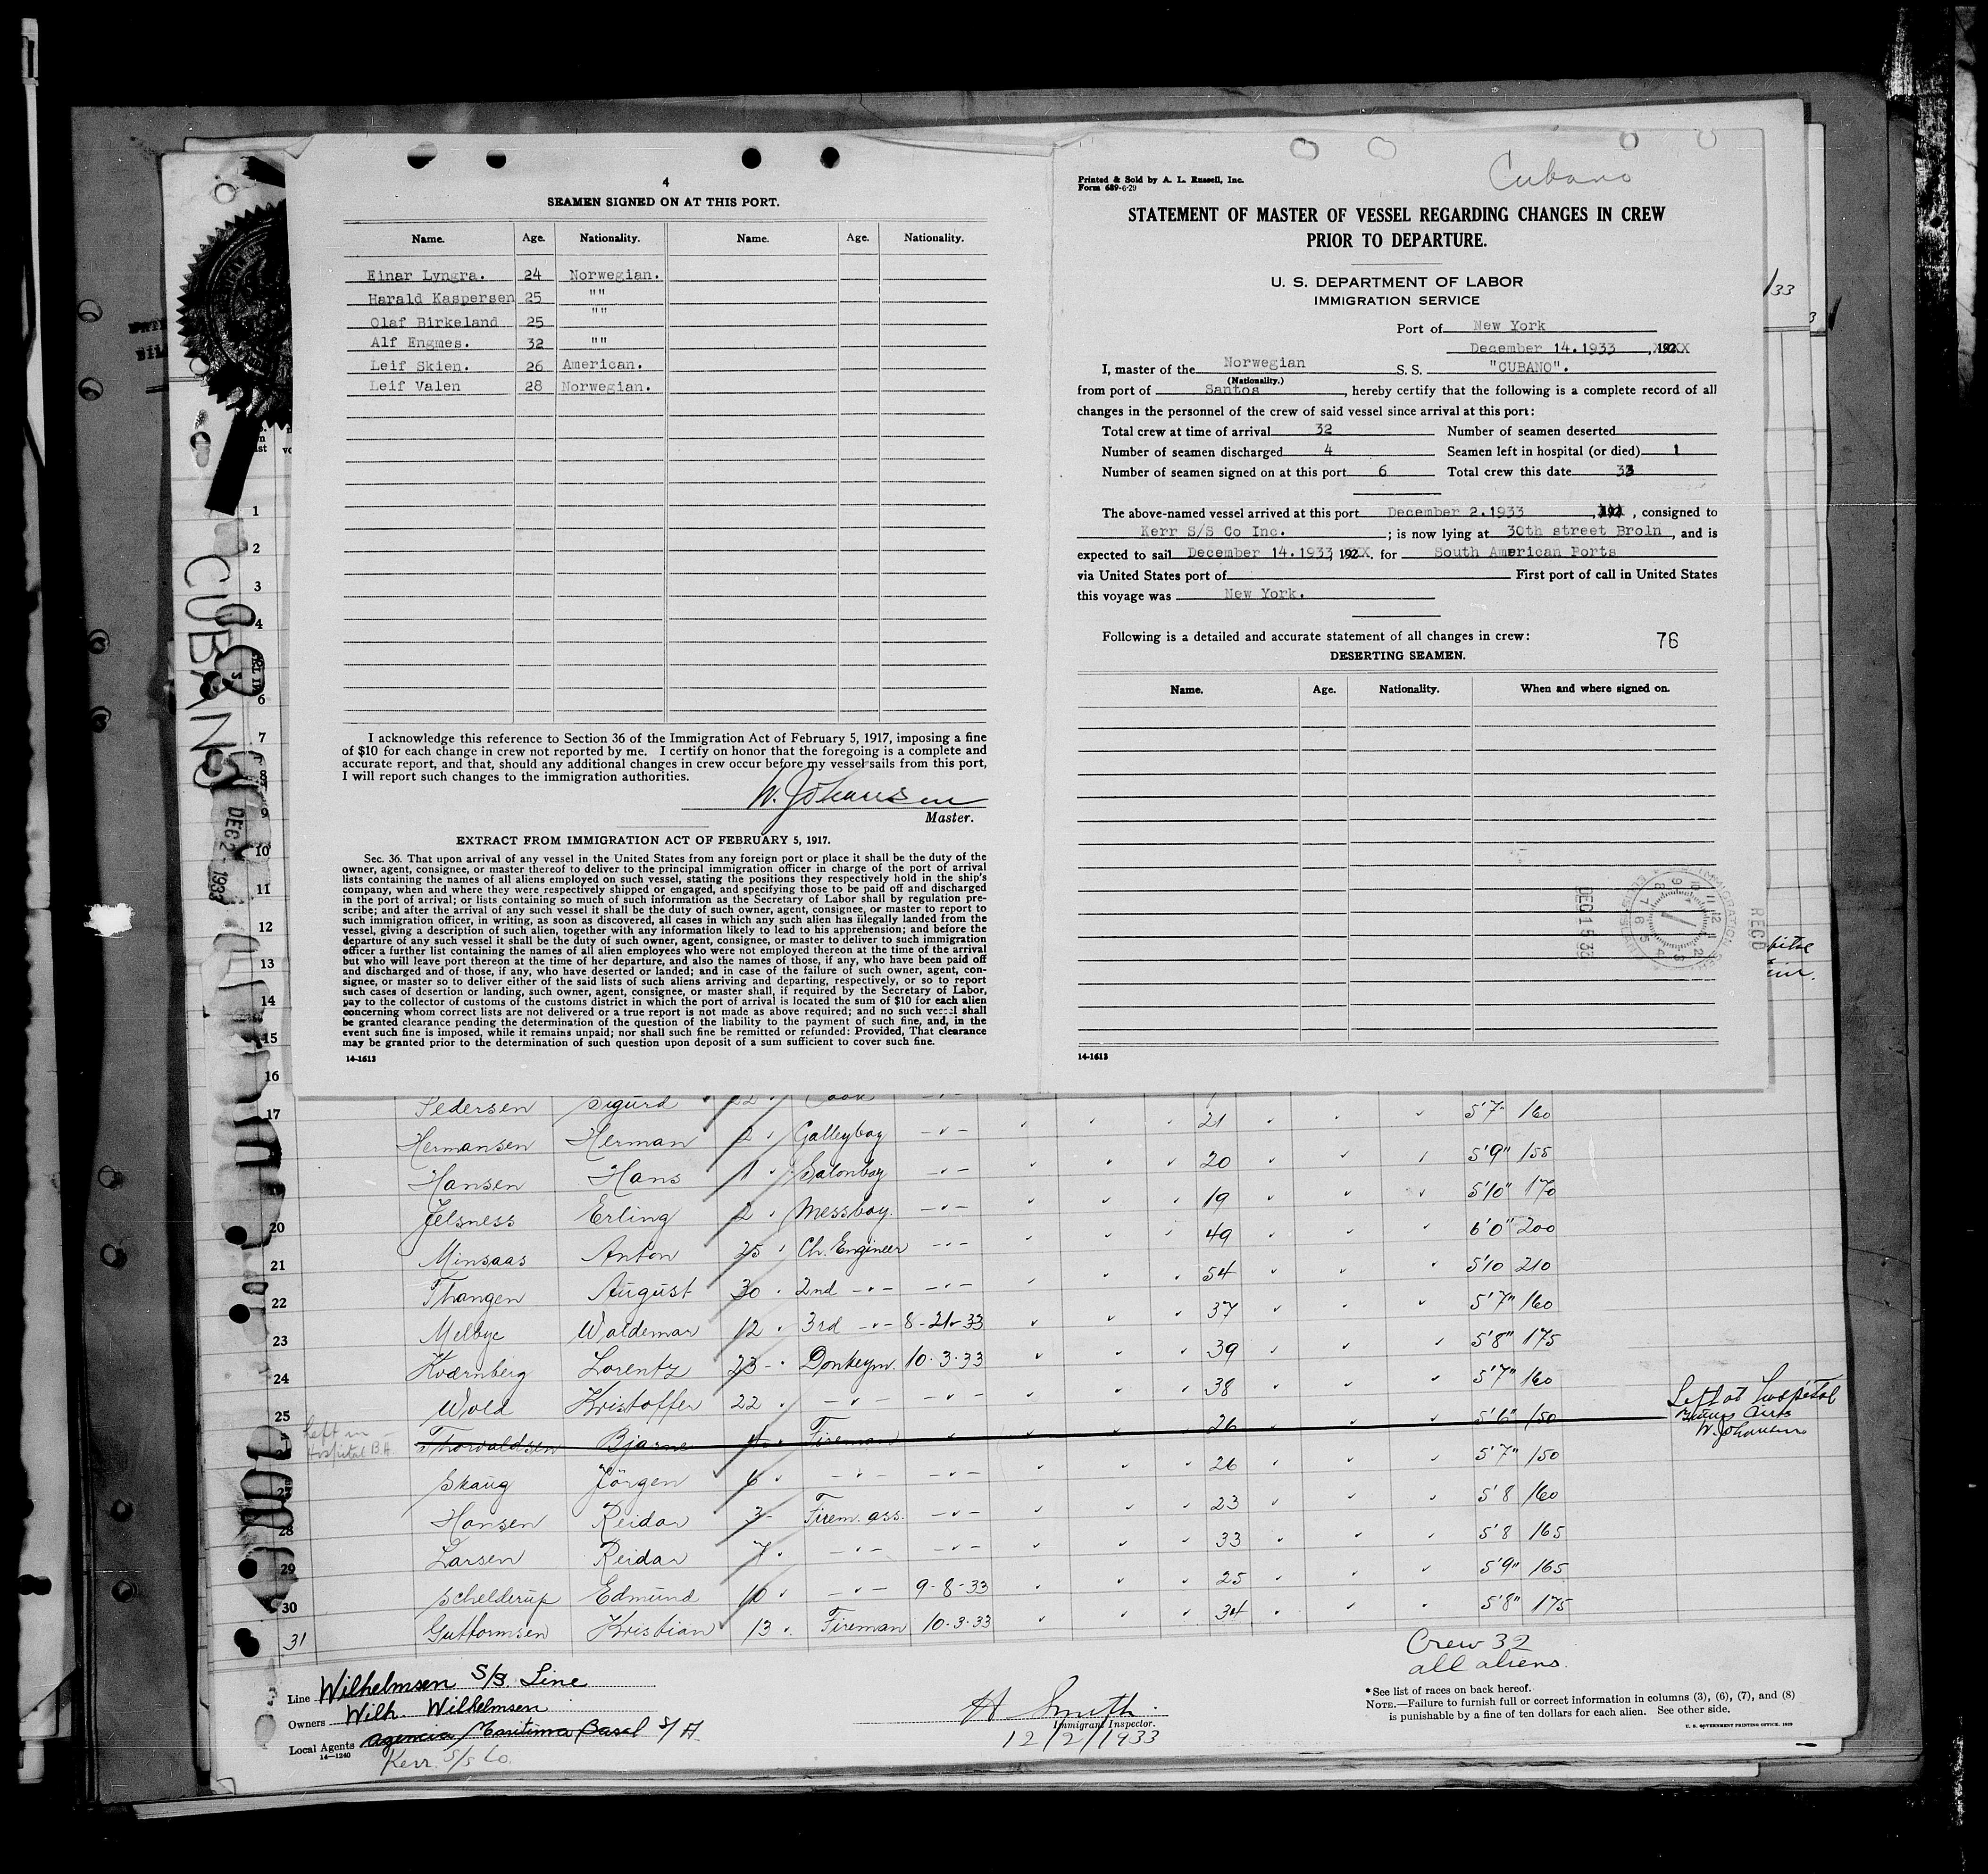 4
SEAMEN SIGNED ON AT THIS PORT.
Name. Age. Nationality. Name. Age. Nationality.
Einar Lyngra. 24 Norwegian.
Harald Kaspersen 25 " "
Olaf Birkeland 25 " "
Alf Engmes. 32 " "
Leif Skien. 26 American.
Leif Valen 28 Norwegian.
I acknowledge this reference to Section 36 of the Immigration Act of February 5, 1917, imposing a fine
of $10 for each change in crew not reported by me. I certify on honor that the foregoing is a complete and
accurate report, and that, should any additional changes in crew occur before my vessel sails from this port,
I will report such changes to the immigration authorities.
W. Johansen
Master.
EXTRACT FROM IMMIGRATION ACT OF FEBRUARY 5, 1917.
Sec. 36. That upon arrival of any vessel in the United States from any foreign port or place it shall be the duty of the
owner, agent, consignee, or master thereof to deliver to the principal immigration officer in charge of the port of arrival
lists containing the names of all aliens employed on such vessel, stating the positions they respectively hold in the ship's
company, when and where they were respectively shipped or engaged, and specifying those to be paid off and discharged
in the port of arrival; or lists containing so much of such information as the Secretary of Labor shall by regulation pre-
scribe; and after the arrival of any such vessel it shall be the duty of such owner, agent, consignee, or master to report to
such immigration officer, in writing, as soon as discovered, all cases in which any such alien has illegally landed from the
vessel, giving a description of such alien, together with any information likely to lead to his apprehension; and before the
departure of any such vessel it shall be the duty of such owner, agent, consignee, or master to deliver to such immigration
officer a further list containing the names of all alien employees who were not employed thereon at the time of the arrival
but who will leave port thereon at the time of her departure, and also the names of those, if any, who have been paid off
and discharged and of those, if any, who have deserted or landed; and in case of the failure of such owner, agent, con-
signee, or master so to deliver either of the said lists of such aliens arriving and departing, respectively, or so to report
such cases of desertion or landing, such owner, agent, consignee, or master shall, if required by the Secretary of Labor,
pay to the collector of customs of the customs district in which the port of arrival is located the sum of $10 for each alien
concerning whom correct lists are not delivered or a true report is not made as above required; and no such vessel shall
be granted clearance pending the determination of the question of the liability to the payment of such fine, and, in the
event such fine is imposed, while it remains unpaid; nor shall such fine be remitted or refunded: Provided, That clearance
may be granted prior to the determination of such question upon deposit of a sum sufficient to cover such fine.
14-1613
Printed & Sold by A. L. Russell, Inc.
Form 689-6-29
Cubano
STATEMENT OF MASTER OF VESSEL REGARDING CHANGES IN CREW
PRIOR TO DEPARTURE.
U. S. DEPARTMENT OF LABOR
IMMIGRATION SERVICE
Port of New York
December 14.1933, 192XX
I, master of the Norwegian S. S. "CUBANO".
(Nationality.)
from port of Santos, hereby certify that the following is a complete record of all
changes in the personnel of the crew of said vessel since arrival at this port:
Total crew at time of arrival 32 Number of seamen deserted
Number of seamen discharged 4 Seamen left in hospital (or died) 1
Number of seamen signed on at this port 6 Total crew this date 33
The above-named vessel arrived at this port December 2.1933, 192X, consigned to
Kerr S/S Co Inc. ; is now lying at 30th street Broln, and is
expected to sail December 14.1933, 192XX. for South American Ports
via United States port of First port of call in United States
this voyage was New York.
Following is a detailed and accurate statement of all changes in crew:
76
DESERTING SEAMEN.
Name. Age. Nationality. When and where signed on.
RECD
DEC 15 33
14-1613
CUBANO
DEC 2 - 1933
1
2
3
4
5
6
7
8
9
10
11
12
13
14
15
16
17 Pedersen Sigurd 22 Cook 21 5'7" 160
Hermansen Herman 2 Galleyboy 20 5'9" 155
Hansen Hans 1 Salonboy 19 5'10" 170
20 Jelsness Erling 2 Messboy. 49 6'0" 200
21 Minsaas Anton 25 Ch. Engineer 54 5'10 210
22 Thangen August 30 2nd 37 5'7" 160
23 Melbye Waldemar 12 3rd 8-21-33 39 5'8" 175
24 Kværnberg Lorentz 23 Donkeym. 10.3.33 38 5'7" 160
25 Wold Kristoffer 22 26 5'6" 150
Left in Hospital B.A. Thorvaldsen Bjarne 4 Fireman Left at hospital Buenos Aires W. Johansen
27 Skaug Jörgen 6 26 5'7" 150
28 Hansen Reidar 3 Firem. ass. 23 5'8 160
29 Larsen Reidar 7 33 5'8 165
30 Schelderup Edmund 10 9-8-33 25 5'9" 165
31 Guttormsen Kristian 13 Fireman 10.3.33 34 5'8" 175
Crew 32
all aliens.
Line Wilhelmsen S/S. Line
Owners Wilh. Wilhelmsen
Local Agents Agencia Maritima Basel S/A.
14-1240
Kerr S/s Co.
H Smith
Immigrant Inspector.
12/2/1933
*See list of races on back hereof.
NOTE.—Failure to furnish full or correct information in columns (3), (6), (7), and (8)
is punishable by a fine of ten dollars for each alien. See other side.
U. S. GOVERNMENT PRINTING OFFICE. 1929